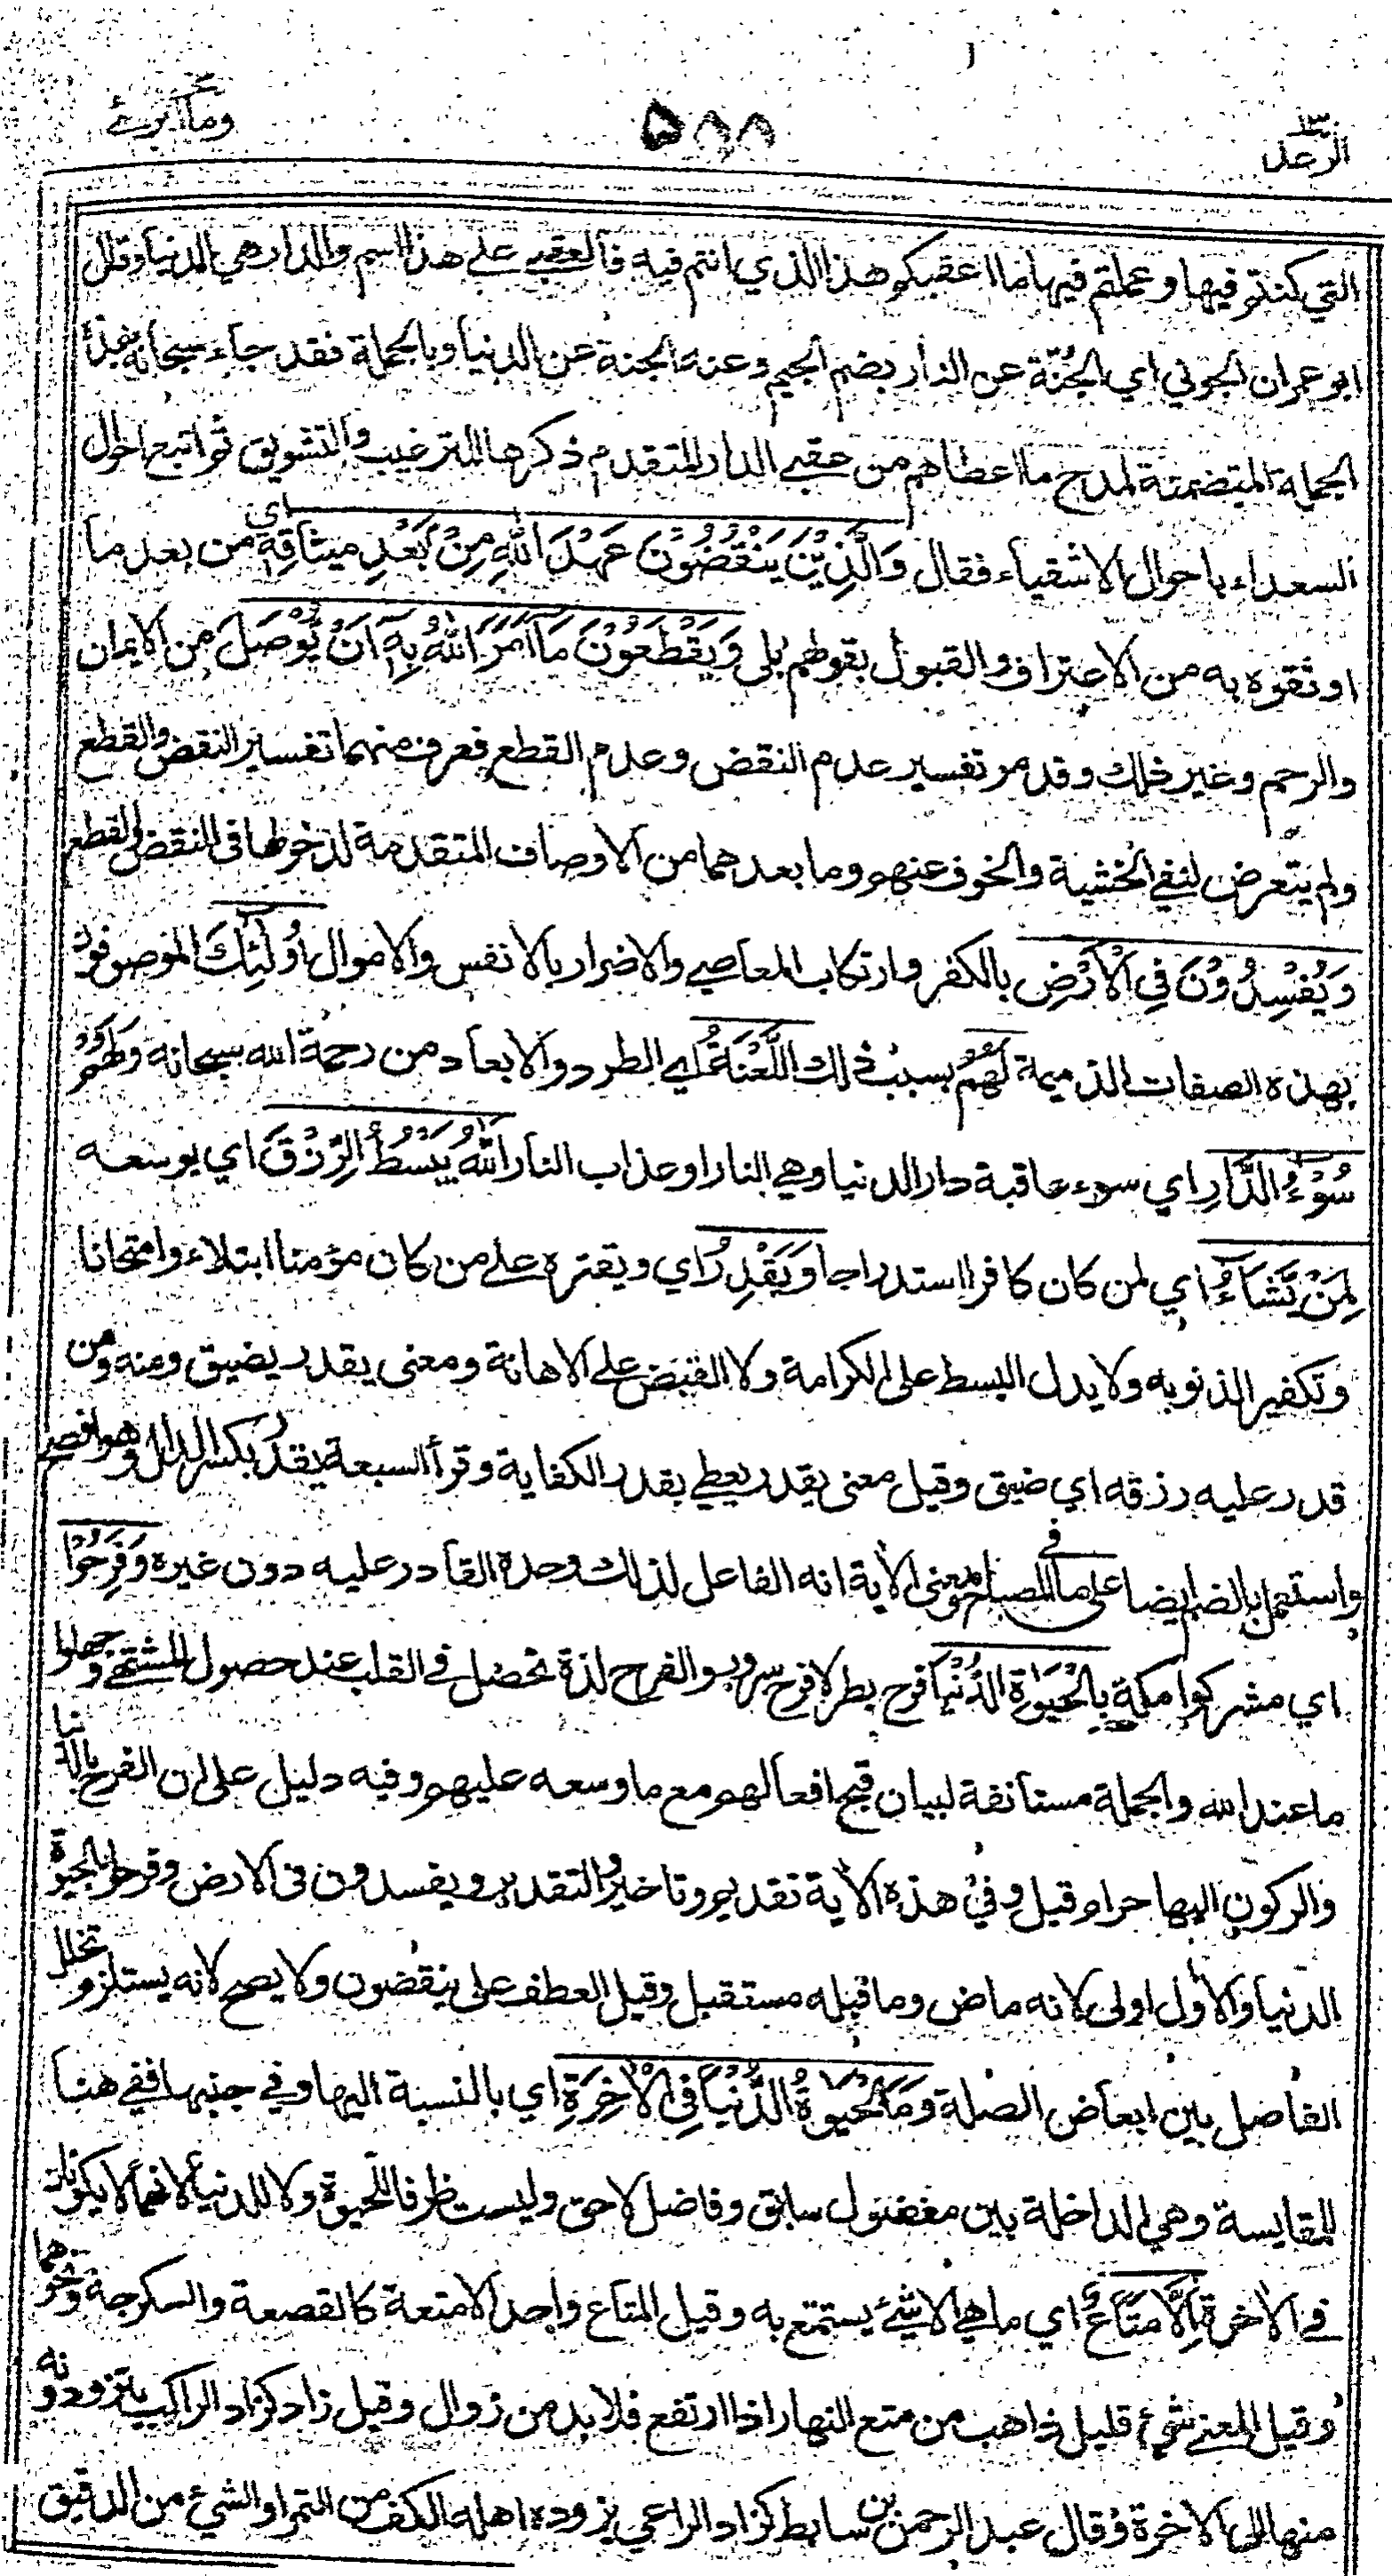 وما ابرئ
٥٨٨
١٣ الرعد
التي كنتم فيها وعملتم فيها ما اعقبكم هذا الذي انتم فيه فالعقبى على هذا اسم والدار هي الدنيا وقال
ابو عمران الجوني اي الجُنّة عن النار بضم الجيم وعنه الجنة عن الدنيا وبالجملة فقد جاء سبحانه بهذه
الجملة المتضمنة لمدح ما اعطاهم من عقبى الدار المتقدم ذكرها للترغيب والتشويق ثم اتبع احوال
السعداء باحوال الاشقياء فقال وَالَّذِيْنَ يَنْقُضُوْنَ عَهْدَ اللهِ مِنْ بَعْدِ مِيثَاقِهِ اي من بعد ما
اوثقوه به من الاعتراف والقبول بقولهم بلى وَيَقْطَعُوْنَ مَآ اَمَرَ اللهُ بِهٖٓ اَنْ يُّوْصَلَ من الايمان
والرحم وغير ذلك وقد مر تفسير عدم النقض وعدم القطع فعرف منهما تفسير النقض والقطع
ولم يتعرض لنفي الخشية والخوف عنهم وما بعدهما من الاوصاف المتقدمة لدخولها في النقض والقطع
وَيُفْسِدُوْنَ فِي الْاَرْضِ بالكفر وارتكاب المعاصي والاضرار بالانفس والاموال اُولٰٓئِكَ الموصوفون
بهذه الصفات الذميمة لَهُمُ بسبب ذلك اللَّعْنَةُ اي الطرد والابعاد من رحمة الله سبحانه وَلَهُمْ
سُوْٓءُ الدَّارِ اي سوء عاقبة دار الدنيا وهي النار او عذاب النار اَللهُ يَبْسُطُ الرِّزْقَ اي يوسعه
لِمَنْ يَّشَآءُ اي لمن كان كافرا استدراجا وَيَقْدِرُ اي ويقتره على من كان مؤمنا ابتلاء وامتحانا
وتكفير الذنوبه ولا يدل البسط على الكرامة ولا القبض على الاهانة ومعنى يقدر يضيق ومنه ومن
قدر عليه رزقه اي ضيق وقيل معنى يقدر يعطي بقدر الكفاية وقرأ السبعة يقدر بكسر الدال وهو افصح
واستعمل بالضم ايضا على ما في المصباح ومعنى الاية انه الفاعل لذلك وحده القادر عليه دون غيره وَفَرِحُوْا
اي مشركوا مكة بِالْحَيٰوةِ الدُّنْيَا فرح بطر لا فرح سرور والفرح لذة تحصل في القلب عند حصول المشتهى وجهلوا
ما عند الله والجملة مستأنفة لبيان قبح افعالهم مع ما وسعه عليهم وفيه دليل على ان الفرح بالدنيا
والركون اليها حرام قيل وفي هذه الاية تقديم وتاخير والتقدير ويفسدون في الارض وفرحوا بالحيوة
الدنيا والاول اولى لانه ماض وما قبله مستقبل وقيل العطف على ينقضون ولا يصح لانه يستلزم تخلل
الفاصل بين ابعاض الصلة وَمَا الْحَيٰوةُ الدُّنْيَا فِي الْاٰخِرَةِ اي بالنسبة اليها وفي جنبها ففي هنا
للمقايسة وهي الداخلة بين مفضول سابق وفاضل لاحق وليست ظرفا للحيوة ولا للدنيا لانهما لا يكونان
في الاخرة اِلَّا مَتَاعٌ اي ما هي الا شيئ يستمتع به وقيل المتاع واحد الامتعة كالقصعة والسكرجة ونحوهما
وقيل المعنى شيئ قليل ذاهب من متع النهار اذا ارتفع فلا بد من زوال وقيل زاد كزاد الراكب يتزودونه
منها الى الاخرة وقال عبد الرحمن بن سابط كزاد الراعي يزوده اهله الكف من التمر او الشيئ من الدقيق